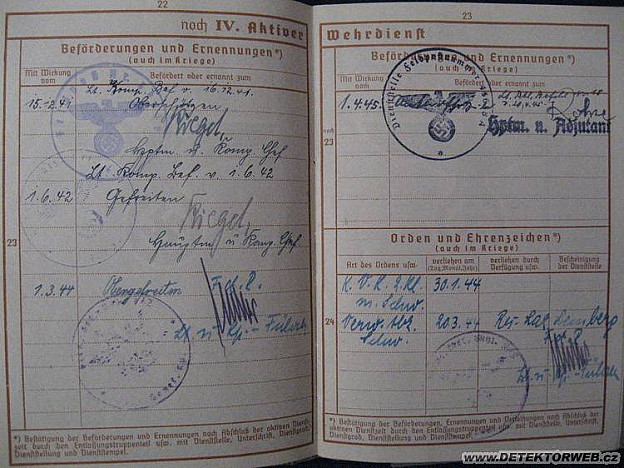 22
noch IV. Aktiver
Beförderungen und Ernennungen*)
(auch im Kriege)
Mit Wirkung vom
Befördert oder ernannt zum
Lt. Komp. Bef. v. 16.12.41
15.12.41 Oberschützen
Riegel
Hptm. u. Komp. Chef
Lt. Komp. Bef. v. 1.6.42
1.6.42 Gefreiten
Riegel
Hauptm. u. Komp. Chef
23
1.3.44 Obergefreiten
Lt. u. Kp.-Führer
*) Bestätigung der Beförderungen und Ernennungen nach Abschluß der aktiven Dienst-
zeit durch den Entlassungstruppenteil usw. mit Dienststelle, Unterschrift, Dienstgrad,
Dienststellung.
23
Wehrdienst
Beförderungen und Ernennungen*)
(auch im Kriege)
Mit Wirkung vom
Befördert oder ernannt zum
1.4.45
Hptm. u. Adjutant
noch
23
Orden und Ehrenzeichen*)
(auch im Kriege)
Art des Ordens usw.
verliehen am
(Tag, Monat, Jahr)
verliehen durch
Verfügung usw.
Bescheinigung
der Dienststelle
K.V.K. 2. Kl. 30.1.44
m. Schw.
24
Verw. Abz. 20.3.44 Res. Laz. Lemberg
Schw.
Lt. u. Kp.-Führer
*) Bestätigung der Beförderungen und Ernennungen nach Abschluß der
aktiven Dienstzeit durch den Entlassungstruppenteil usw. mit Dienststelle, Unterschrift,
Dienstgrad, Dienststellung.
www.DETEKTORWEB.cz